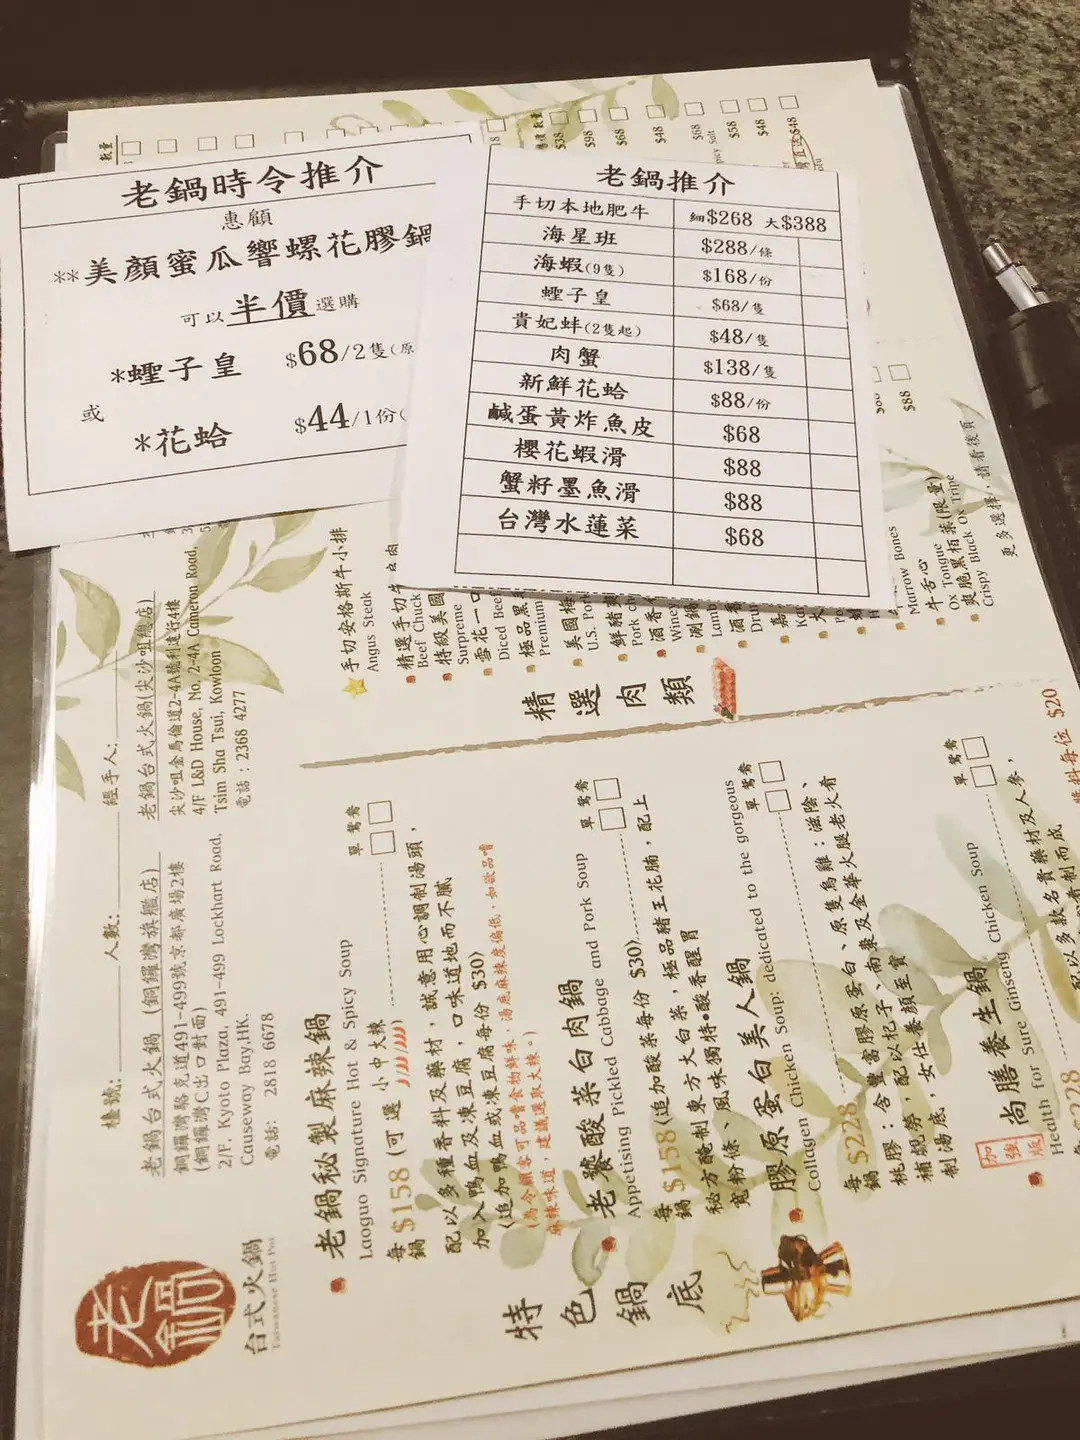 老鍋時令推介
惠顧
**美顏蜜瓜響螺花膠鍋
可以半價選購
*蟶子皇 $68/2隻(原
或
*花蛤 $44/1份(
老鍋推介
手切本地肥牛 細$268 大$388
海星班 $288/條
海蝦(9隻) $168/份
蟶子皇 $68/隻
貴妃蚌(2隻起) $48/隻
肉蟹 $138/隻
新鮮花蛤 $88/份
鹹蛋黃炸魚皮 $68
櫻花蝦滑 $88
蟹籽墨魚滑 $88
台灣水蓮菜 $68
數量
$38
$98
$68
$48
$68
$58
$48
$48
$88
老鍋
台式火鍋
Taiwanese Hot Pot
檯號: 人數: 經手人:
老鍋台式火鍋 (銅鑼灣旗艦店)
銅鑼灣駱克道491-499號京都廣場2樓
(銅鑼灣C出口對面)
2/F, Kyoto Plaza, 491-499 Lockhart Road,
Causeway Bay,HK.
電話: 2818 6678
老鍋台式火鍋(尖沙咀總店)
尖沙咀金馬倫道2-4A號利進行4樓
4/F L&D House, No, 2-4A Cameron Road,
Tsim Sha Tsui, Kowloon
電話 : 2368 4277
特色鍋底
老鍋秘製麻辣鍋 單 鴛鴦
Laoguo Signature Hot & Spicy Soup
每鍋 $158 (可選 小 中 大辣
配以多種香料及藥材，誠意用心調制湯頭，
加入鴨血及凍豆腐，口味道地而不膩
(追加鴨血或凍豆腐每份 $30)
(為令顧客可品嚐食物鮮味，湯底麻辣度偏低，如欲品嚐
麻辣味道，建議選取大辣。)
老饕酸菜白肉鍋 單 鴛鴦
Appetising Pickled Cabbage and Pork Soup
每鍋 $158(追加酸菜每份 $30)
秘方醃制東方大白菜，極品豬王花腩，配上
寬粉條、風味獨特•酸香醒胃
膠原蛋白美人鍋 單 鴛鴦
Collagen Chicken Soup: dedicated to the gorgeous
每鍋 $228
桃膠：含豐富膠原蛋白、原隻烏雞：滋陰、
補虛勞，配以杞子、南棗及金華火腿老火肴
制湯底，女仕養顏至寶
加強版 尚膳養生鍋 單 鴛鴦
Health for Sure Ginseng Chicken Soup
$228
配以多款名貴藥材及人參，
醬料每位 $20
精選肉類
手切安格斯牛小排
Angus Steak
精選手切牛
Beef Chuck
特級美國
Surpreme
雪花一口
Diced Beef
極品黑
Premium
美國梅
U.S. Por
鮮豬
Pork ch
酒香
Wine
涮鍋
Lamb
酒香
Drun
Marrow Bones
牛舌心
Ox Tongue
爽脆黑栢葉(限量)
Crispy Black Ox Tripe
更多選擇，請看後頁